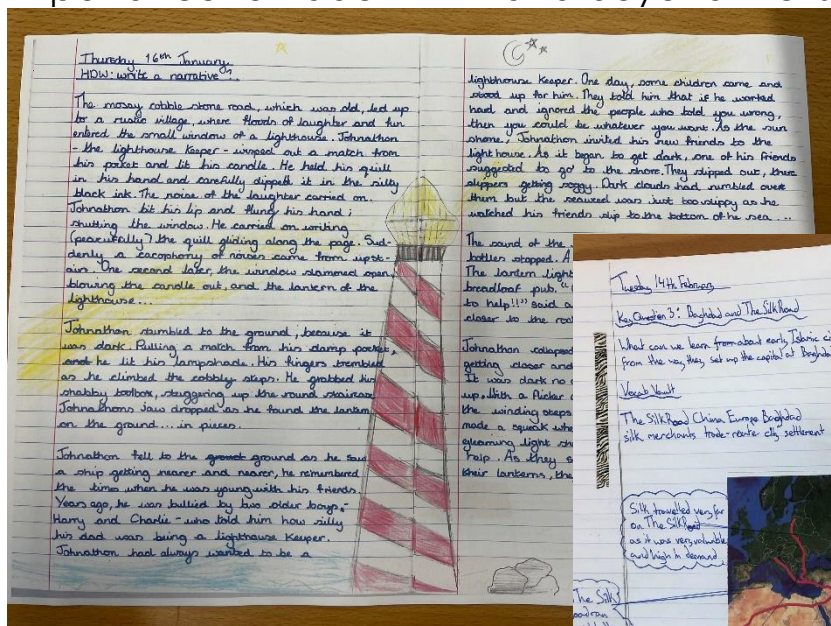 Thursday 16th January
HDW: write a narrative
The mossy cobble stone road, which was old, led up
to a rustic village, where floods of laughter and fun
entered the small window of a lighthouse. Johnathon
- the lighthouse keeper - whipped out a match from
his pocket and lit his candle. He held his quill
in his hand and carefully dippelt it in the silky
black ink. The noise of the laughter carried on.
Johnathon bit his lip and flung his hand;
shutting the window. He carried on writing
(peacefully) the quill gliding along the page. Sud-
denly a cacophony of noises came from upst-
airs. One second later, the window slammed open,
blowing the candle out, and the lantern of the
lighthouse...
Johnathon stumbled to the ground; because it
was dark. Pulling a match from his damp pocket,
and he lit his lampshade. His fingers trembled
as he climbed the cobbly steps. He grabbed his
shabby toolbox, struggering up the round staircase
Johnathons jaw dropped as he found the lantern
on the ground... in pieces.
Johnathon fell to the ground as he saw
a ship getting nearer and nearer, he remembered
the times when he was young with his friends.
Years ago, he was bullied by two older boys -
Harry and Charlie - who told him how silly
his dad was being a lighthouse keeper.
Johnathon had always wanted to be a
lighthouse keeper. One day, some children came and
stood up for him. They told him that if he worked
hard and ignored the people who told you wrong,
then you could be whatever you want. As the sun
shone, Johnathon invited his new friends to the
lighthouse. As it began to get dark, one of his friends
suggested to go to the shore. They slipped out, there
slippers getting soggy. Dark clouds had rumbled over
them but the seaweed was just too slippy as he
watched his friends slip to the bottom of he sea...
The sound of the
bottles stopped. A
The lantern light
breadloaf pub. "
to help!!" said a
closer to the roc
Johnathon collapsed
getting closer and
It was dark no
up. With a flicker
the winding steps
made a squeak whe
gleaming light sh
help. As they s
their lanterns, the
Tuesday 14th February
Key Question 3: Baghdad and The Silk Road
What can we learn from about early Islamic ci
from the way they set up the capital at Baghda
Vocab Vault
The Silk Road China Europe Baghdad
silk merchants trade-route city settlement
Silk travelled very far
on The Silk Road
as it was very valuable
and high in demand
The Silk